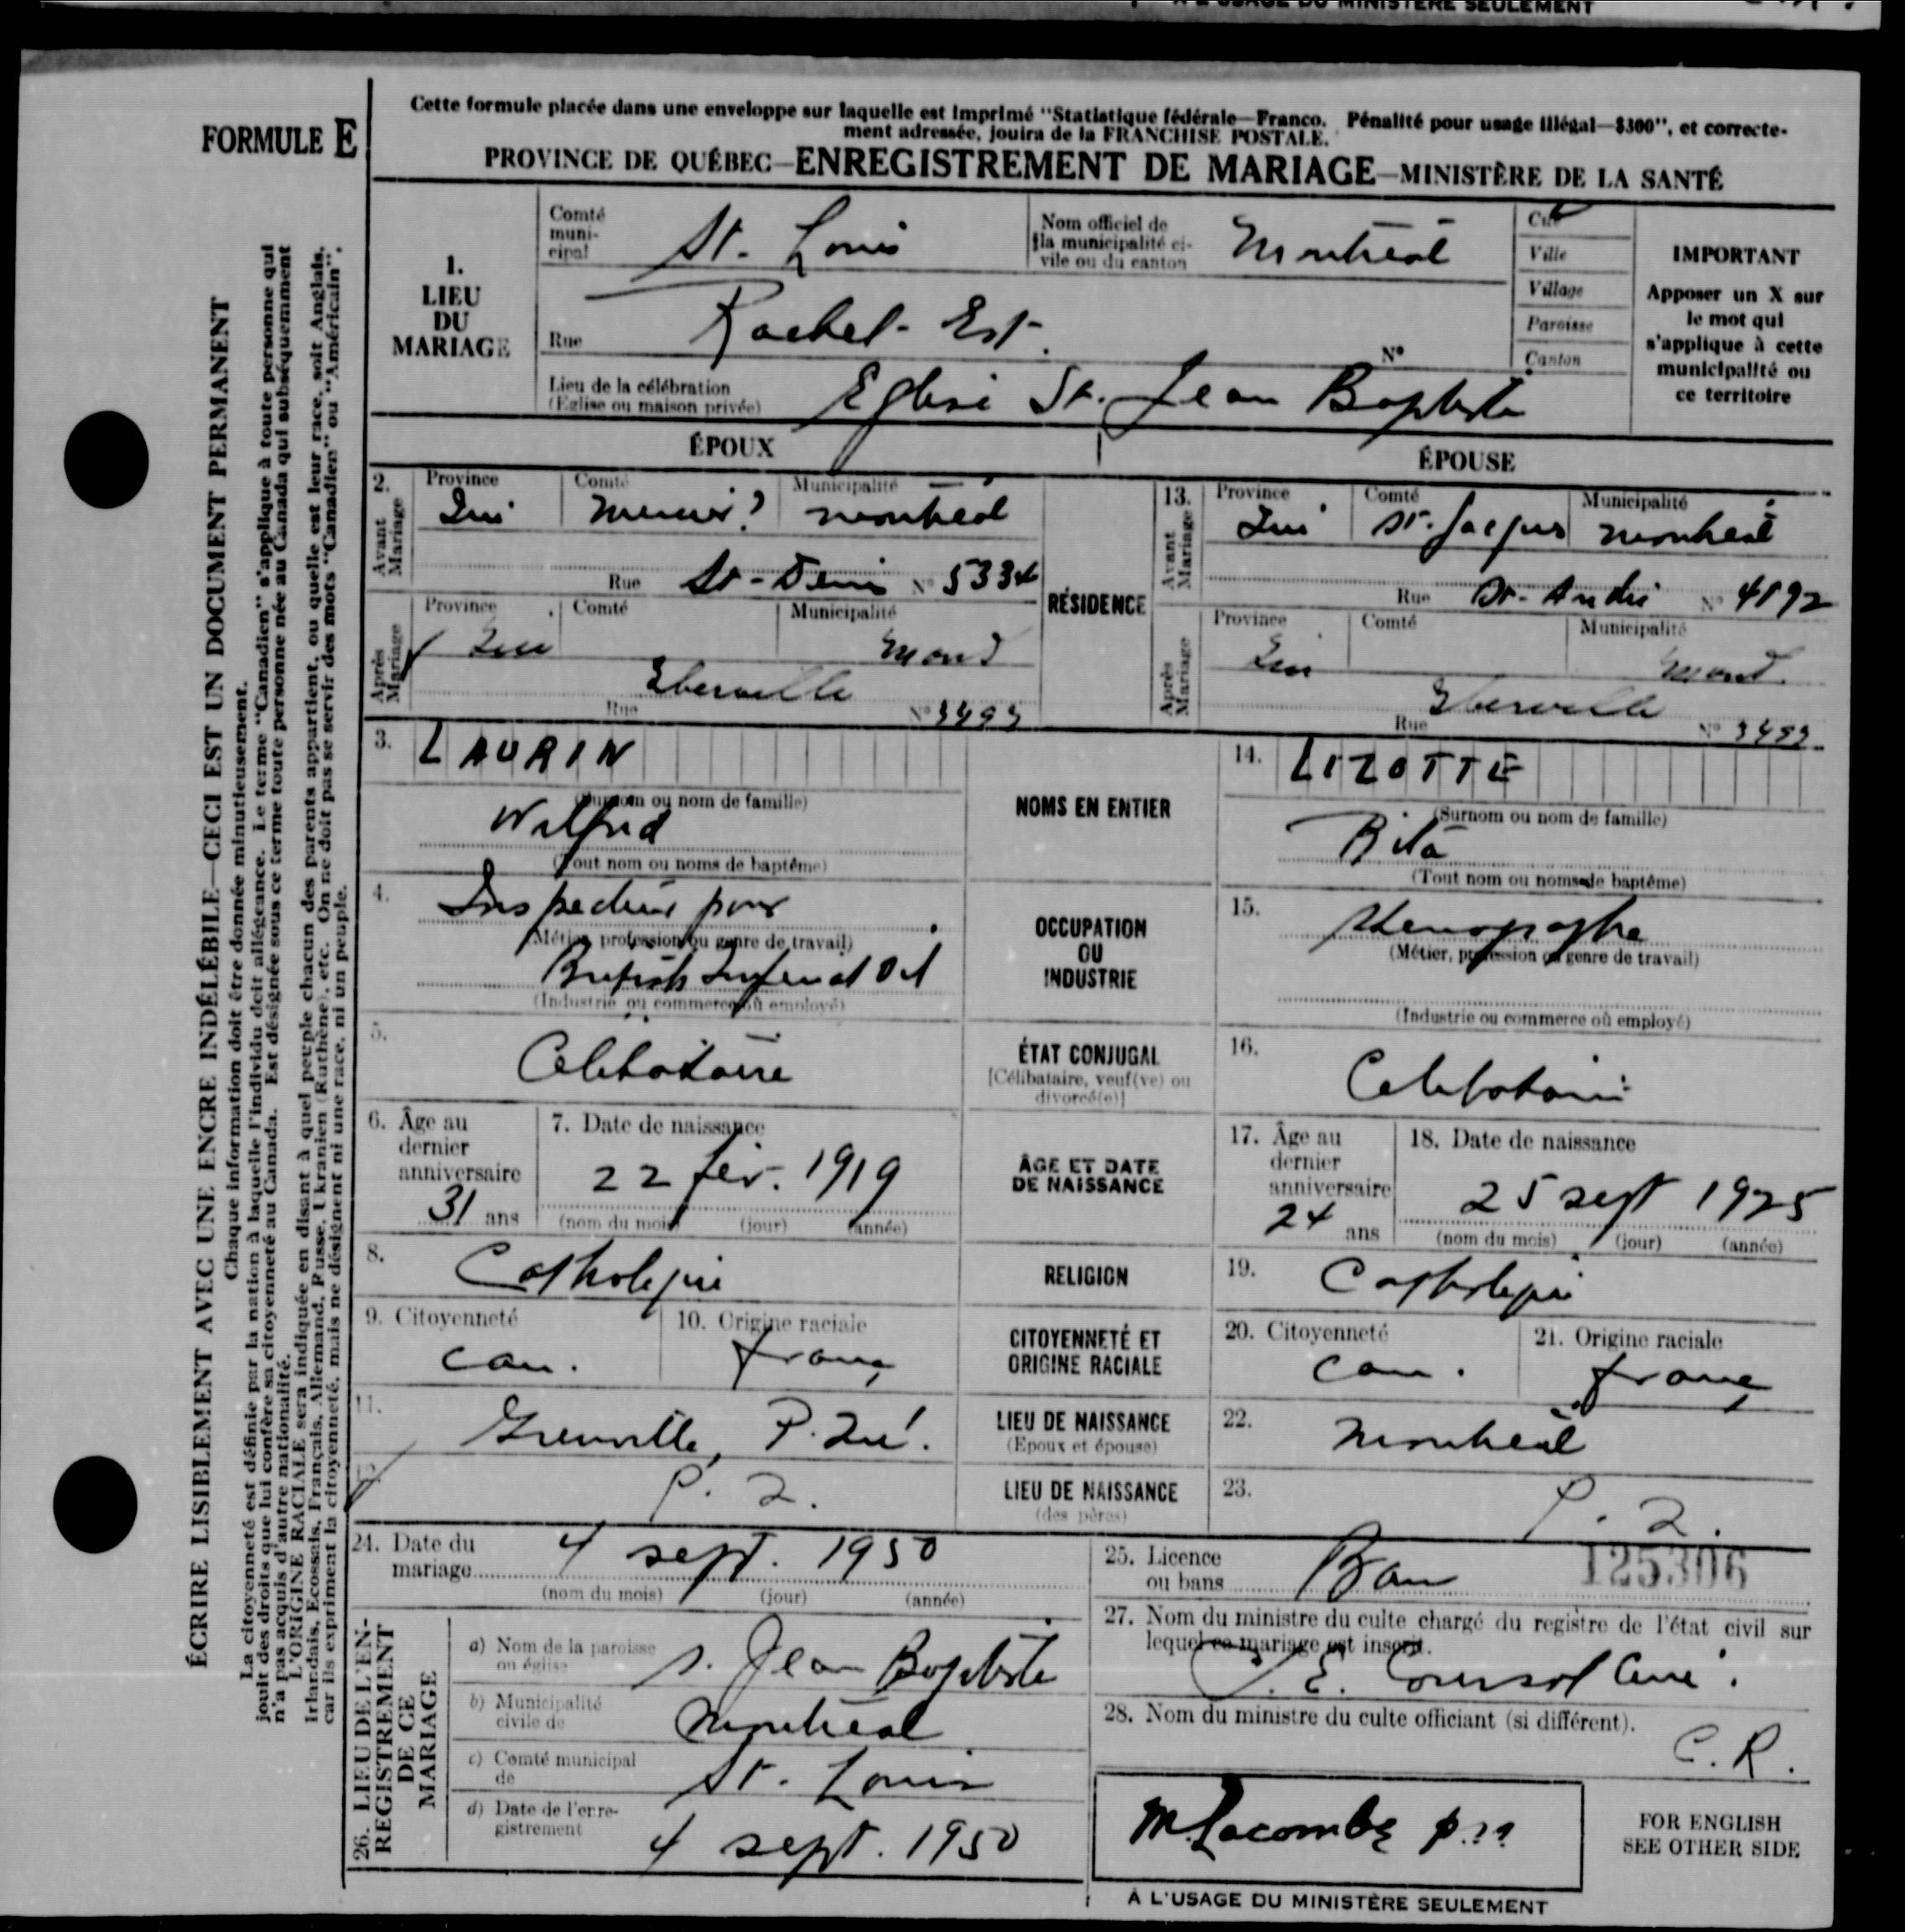 À L'USAGE DU MINISTÈRE SEULEMENT
FORMULE E
Cette formule placée dans une enveloppe sur laquelle est imprimé "Statistique fédérale—Franco. Pénalité pour usage illégal—$300", et correcte-
ment adressée, jouira de la FRANCHISE POSTALE.
PROVINCE DE QUÉBEC—ENREGISTREMENT DE MARIAGE—MINISTÈRE DE LA SANTÉ
ÉCRIRE LISIBLEMENT AVEC UNE ENCRE INDÉLÉBILE—CECI EST UN DOCUMENT PERMANENT
Chaque information doit être donnée minutieusement.
La citoyenneté est définie par la nation à laquelle l'individu doit allégeance. Le terme "Canadien" s'applique à toute personne qui
jouit des droits que lui confère sa citoyenneté au Canada. Est désignée sous ce terme toute personne née au Canada qui subséquemment
n'a pas acquis d'autre nationalité.
L'ORIGINE RACIALE sera indiquée en disant à quel peuple chacun des parents appartient, ou quelle est leur race, soit Anglais,
Irlandais, Ecossais, Français, Allemand, Russe, Ukranien (Ruthène), etc. On ne doit pas se servir des mots "Canadien" ou "Américain",
car ils expriment la citoyenneté, mais ne désignent ni une race, ni un peuple.
1. LIEU DU MARIAGE
Comté municipal St. Louis
Nom officiel de la municipalité civile ou du canton Montréal
Cité
Ville
Village
Paroisse
Canton
IMPORTANT
Apposer un X sur
le mot qui
s'applique à cette
municipalité ou
ce territoire
Rue Rachel-Est. N°
Lieu de la célébration (Eglise ou maison privée) Eglise St. Jean Baptiste
ÉPOUX
ÉPOUSE
2. Avant Mariage
Province Qué Comté Mercier? Municipalité Montréal
Rue St-Denis N° 5334
Après Mariage
Province Qué Comté Municipalité Mont
Rue Iberville N° 3493
RÉSIDENCE
13. Avant Mariage
Province Qué Comté St. Jacques Municipalité Montréal
Rue St-André N° 4192
Après Mariage
Province Qué Comté Municipalité Mont.
Rue Iberville N° 3493
3. LAURIN
(Surnom ou nom de famille)
Wilfrid
(Tout nom ou noms de baptême)
NOMS EN ENTIER
14. LIZOTTE
(Surnom ou nom de famille)
Rita
(Tout nom ou noms de baptême)
4. Inspecteur pour
(Métier, profession ou genre de travail)
British Imperial Oil
(Industrie ou commerce où employé)
OCCUPATION
OU
INDUSTRIE
15. Stenographe
(Métier, profession ou genre de travail)
(Industrie ou commerce où employé)
5. Celibataire
ÉTAT CONJUGAL
[Célibataire, veuf(ve) ou
divorcé(e)]
16. Celibataire
6. Âge au dernier anniversaire 31 ans
7. Date de naissance
22 fév. 1919
(nom du mois) (jour) (année)
ÂGE ET DATE
DE NAISSANCE
17. Âge au dernier anniversaire 24 ans
18. Date de naissance
25 sept 1925
(nom du mois) (jour) (année)
8. Catholique
RELIGION
19. Catholique
9. Citoyenneté can.
10. Origine raciale franç
CITOYENNETÉ ET
ORIGINE RACIALE
20. Citoyenneté can.
21. Origine raciale franç
11. Grenville, P. Qué.
LIEU DE NAISSANCE
(Epoux et épouse)
22. Montréal
12. P. Q.
LIEU DE NAISSANCE
(des pères)
23. P. Q.
24. Date du mariage 4 sept. 1950
(nom du mois) (jour) (année)
25. Licence ou bans Ban
125306
26. LIEU DE L'ENREGISTREMENT DE CE MARIAGE
a) Nom de la paroisse ou église S. Jean Baptiste
b) Municipalité civile de Montréal
c) Comté municipal de St. Louis
d) Date de l'enregistrement 4 sept. 1950
27. Nom du ministre du culte chargé du registre de l'état civil sur
lequel ce mariage est inscrit.
J. E. Coursol Curé.
28. Nom du ministre du culte officiant (si différent).
C. R.
M. Lacombe
FOR ENGLISH
SEE OTHER SIDE
À L'USAGE DU MINISTÈRE SEULEMENT